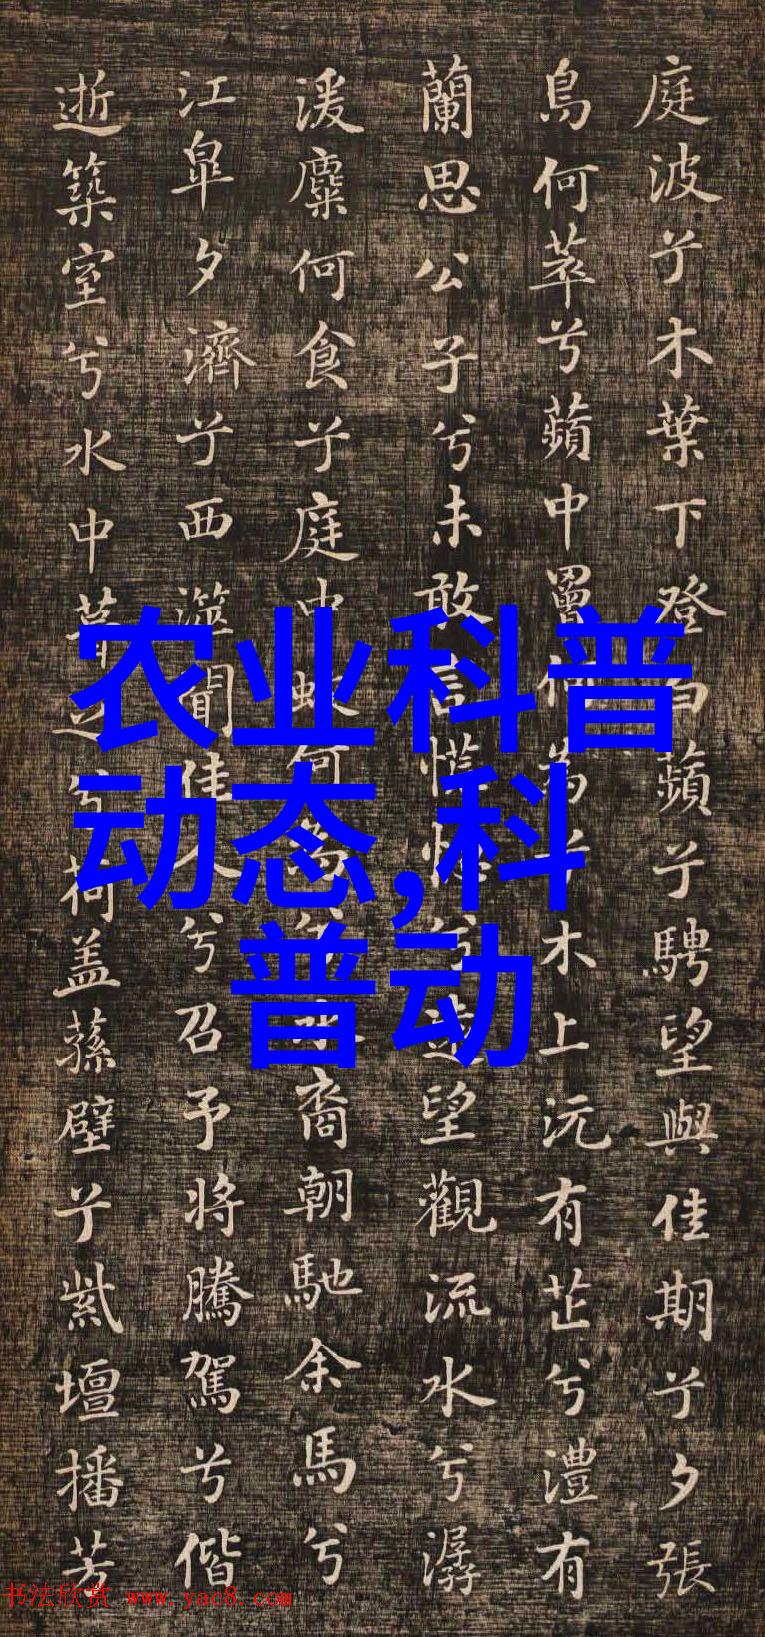 庭波兮木葉下登白蘋兮騁望與佳期兮夕張
鳥何萃兮蘋中罾何為兮木上沅有芷兮澧有
蘭思公子兮未敢言慌惚兮遠望觀流水兮潺
湲麋何食兮庭中蛟何為兮水裔朝馳余馬兮
江皋夕濟兮西澨聞佳人兮召予将騰駕兮偕
逝築室兮水中葺之兮荷盖蓀壁兮紫壇播芳
农业科普
动态,科
普动
书法欣赏 www.yac8.com